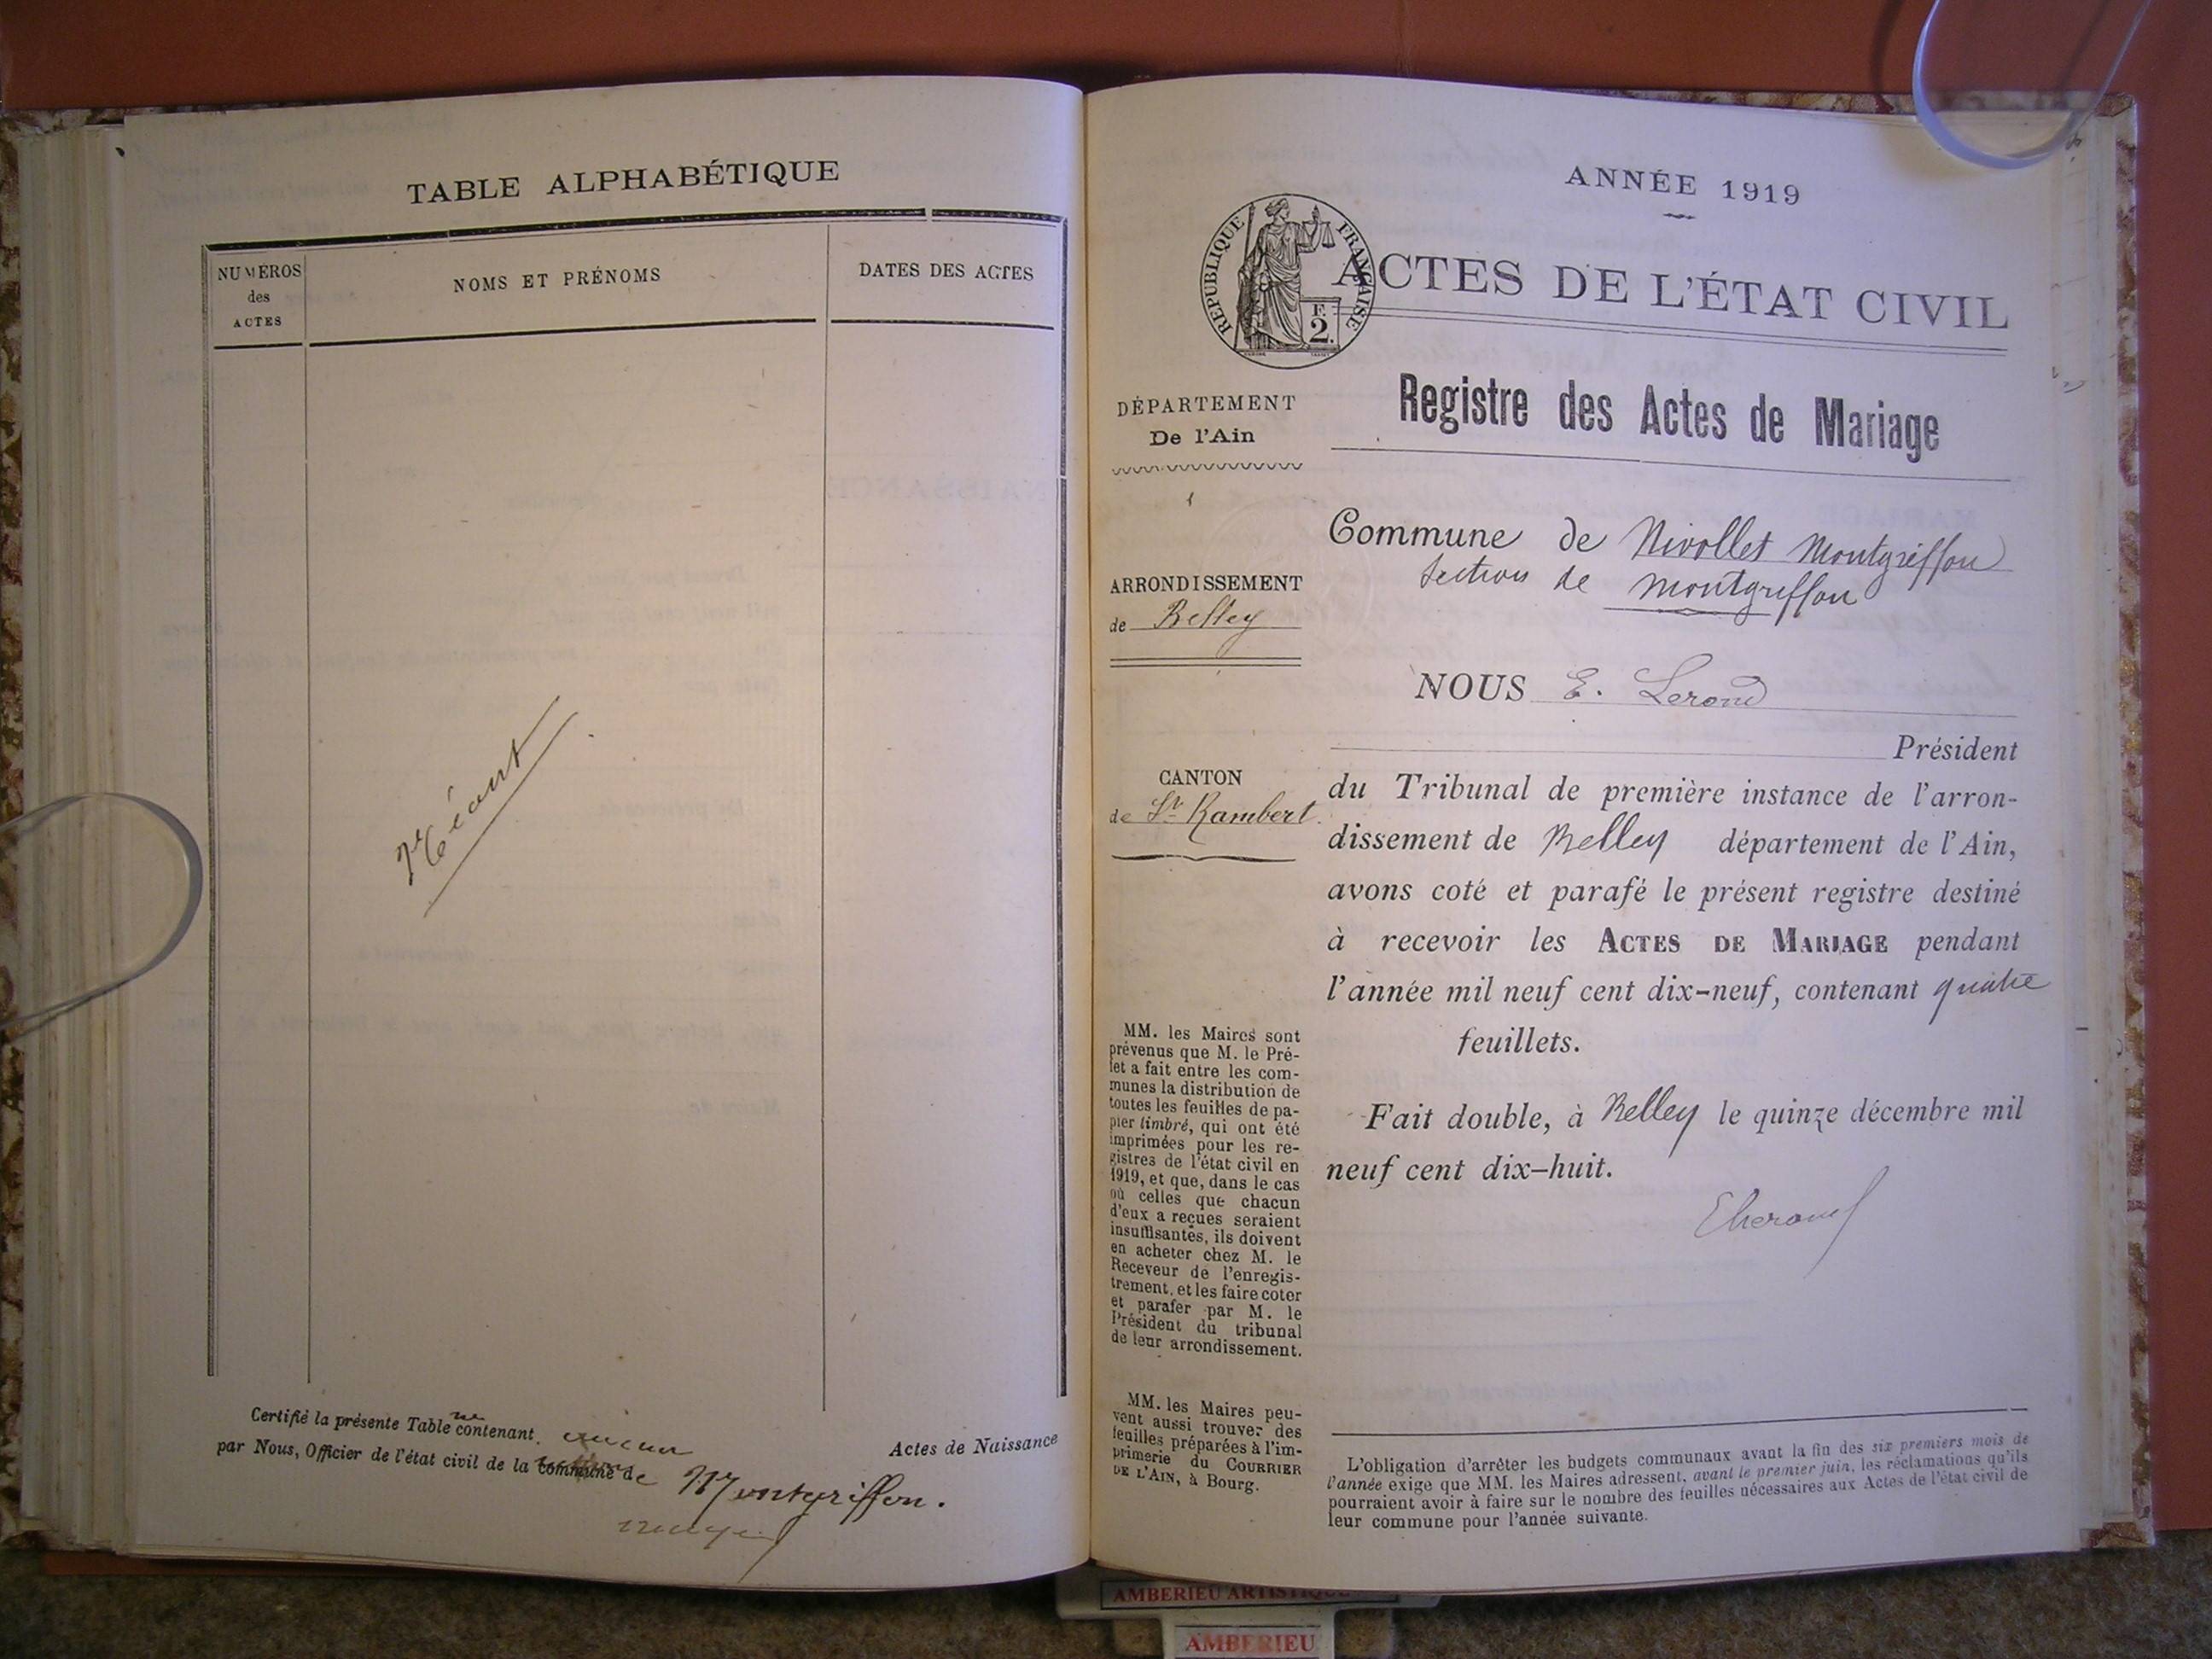 TABLE ALPHABÉTIQUE
NUMÉROS
des
ACTES
NOMS ET PRÉNOMS
DATES DES ACTES
Néant
Certifié la présente Table ne contenant aucun Actes de Naissance
par Nous, Officier de l'état civil de la commune de Montgriffon.
ANNÉE 1919
RÉPUBLIQUE FRANÇAISE
F.
2.
ACTES DE L'ÉTAT CIVIL
Registre des Actes de Mariage
DÉPARTEMENT
De l'Ain
ARRONDISSEMENT
de Belley
CANTON
de St Rambert.
MM. les Maires sont
prévenus que M. le Pré-
fet a fait entre les com-
munes la distribution de
toutes les feuilles de pa-
pier timbré, qui ont été
imprimées pour les re-
gistres de l'état civil en
1919, et que, dans le cas
où celles que chacun
d'eux a reçues seraient
insuffisantes, ils doivent
en acheter chez M. le
Receveur de l'enregis-
trement, et les faire coter
et parafer par M. le
Président du tribunal
de leur arrondissement.
MM. les Maires peu-
vent aussi trouver des
feuilles préparées à l'im-
primerie du COURRIER
DE L'AIN, à Bourg.
Commune de Nivollet Montgriffon
Section de Montgriffon
NOUS E. Lerond
Président
du Tribunal de première instance de l'arron-
dissement de Belley département de l'Ain,
avons coté et parafé le présent registre destiné
à recevoir les ACTES DE MARIAGE pendant
l'année mil neuf cent dix-neuf, contenant quatre
feuillets.
Fait double, à Belley le quinze décembre mil
neuf cent dix-huit.
ELerond
L'obligation d'arrêter les budgets communaux avant la fin des six premiers mois de
l'année exige que MM. les Maires adressent, avant le premier juin, les réclamations qu'ils
pourraient avoir à faire sur le nombre des feuilles nécessaires aux Actes de l'état civil de
leur commune pour l'année suivante.
AMBERIEU ARTISTIQUE
AMBERIEU